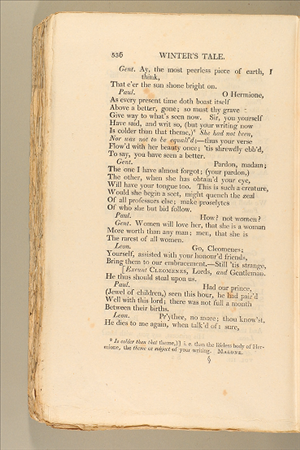 336 WINTER'S TALE.
Gent. Ay, the most peerless piece of earth, I
think,
That e'er the sun shone bright on.
Paul. O Hermione,
As every present time doth boast itself
Above a better, gone; so must thy grave
Give way to what's seen now. Sir, you yourself
Have said, and writ so, (but your writing now
Is colder than that theme,)* She had not been,
Nor was not to be equall'd;—thus your verse
Flow'd with her beauty once; 'tis shrewdly ebb'd,
To say, you have seen a better.
Gent. Pardon, madam;
The one I have almost forgot; (your pardon,)
The other, when she has obtain'd your eye,
Will have your tongue too. This is such a creature,
Would she begin a sect, might quench the zeal
Of all professors else; make proselytes
Of who she but bid follow.
Paul. How? not women?
Gent. Women will love her, that she is a woman
More worth than any man; men, that she is
The rarest of all women.
Leon. Go, Cleomenes;
Yourself, assisted with your honour'd friends,
Bring them to our embracement.—Still 'tis strange,
[Exeunt CLEOMENES, Lords, and Gentleman.
He thus should steal upon us.
Paul. Had our prince,
(Jewel of children,) seen this hour, he had pair'd
Well with this lord; there was not full a month
Between their births.
Leon. Pr'ythee, no more; thou know'st,
He dies to me again, when talk'd of: sure,
* Is colder than that theme,)] i. e. than the lifeless body of Her-
mione, the theme or subject of your writing. MALONE.